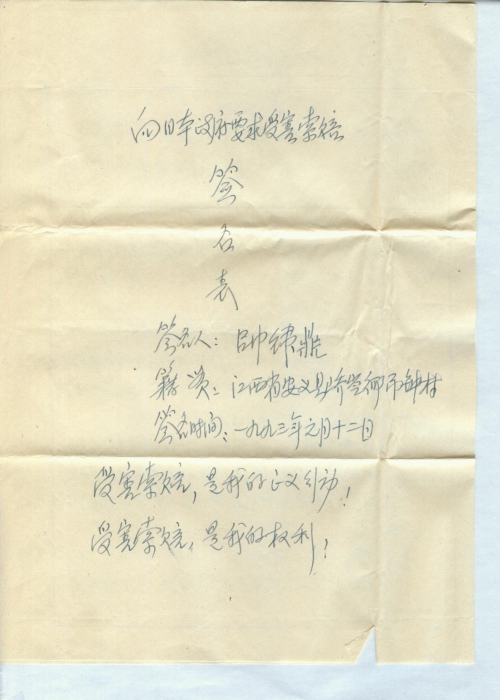 向日本政府要求受害索赔
签
名
表
签名人：帅镇鼎
籍贯：江西省安义县乔乐乡帅钟村
签名时间：一九九三年元月十二日
受害索赔，是我的正义行动！
受害索赔，是我的权利！